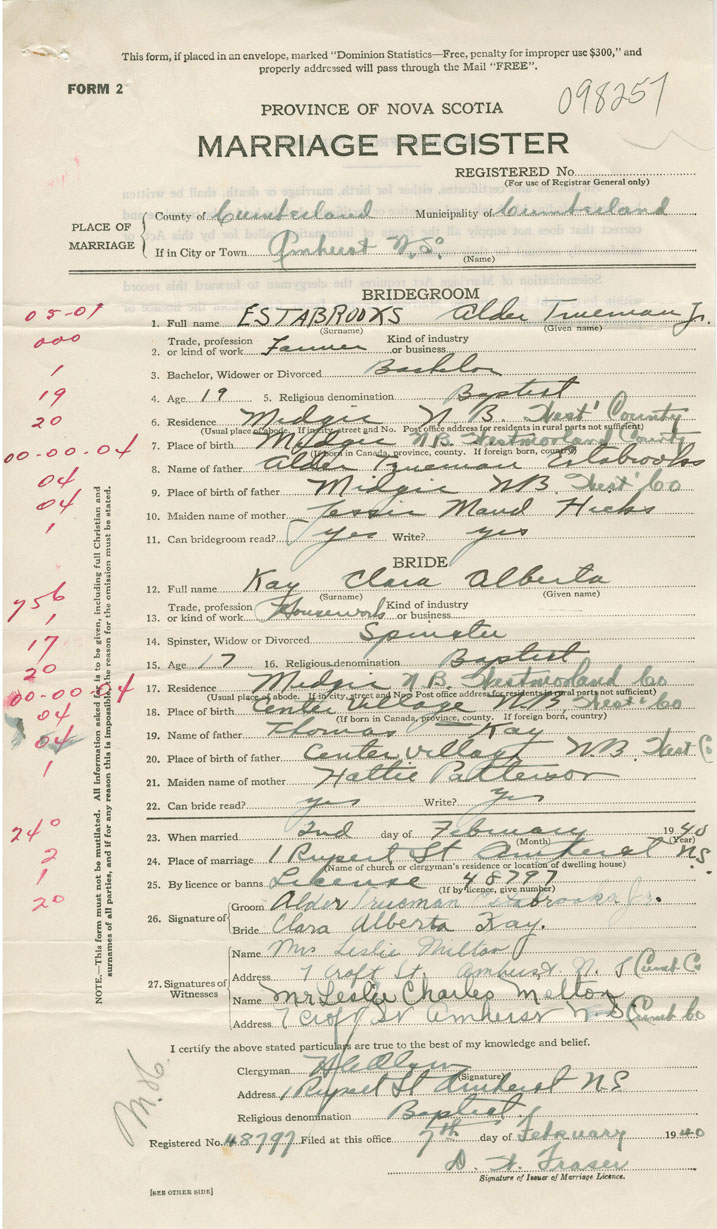 This form, if placed in an envelope, marked "Dominion Statistics—Free, penalty for improper use $300," and
properly addressed will pass through the Mail "FREE".
FORM 2
098257
PROVINCE OF NOVA SCOTIA
MARRIAGE REGISTER
REGISTERED No.
(For use of Registrar General only)
PLACE OF MARRIAGE
County of Cumberland Municipality of Cumberland
If in City or Town Amherst N.S.
(Name)
BRIDEGROOM
05-01
1. Full name ESTABROOKS Alder Trueman Jr.
(Surname) (Given name)
000
2. Trade, profession or kind of work Farmer Kind of industry or business
1
3. Bachelor, Widower or Divorced Bachelor
19
4. Age 19 5. Religious denomination Baptist
20
6. Residence Midgic N.B. West' County
(Usual place of abode. If in city, street and No. Post office address for residents in rural parts not sufficient)
00-00-04
7. Place of birth Midgic N.B. Westmorland County
(If born in Canada, province, county. If foreign born, country)
04
8. Name of father Alder Trueman Estabrooks
04
9. Place of birth of father Midgic N.B. West' Co
10. Maiden name of mother Jessie Maud Hicks
1
11. Can bridegroom read? yes Write? yes
BRIDE
12. Full name Kay Clara Alberta
(Surname) (Given name)
756
13. Trade, profession or kind of work Housework Kind of industry or business
1
14. Spinster, Widow or Divorced Spinster
17
15. Age 17 16. Religious denomination Baptist
20
17. Residence Midgic N.B. Westmorland Co
(Usual place of abode. If in city, street and No. Post office address for residents in rural parts not sufficient)
00-00-04
18. Place of birth Center Village N.B. West' Co
(If born in Canada, province, county. If foreign born, country)
04
19. Name of father Thomas Kay
04
20. Place of birth of father Center Village N.B. West C
1
21. Maiden name of mother Hattie Patterson
22. Can bride read? yes Write? yes
240
23. When married 2nd day of February 1940
(Month) (Year)
2
24. Place of marriage 1 Rupert St Amherst N.S.
(Name of church or clergyman's residence or location of dwelling house)
1
25. By licence or banns License 48797
(If by licence, give number)
20
26. Signature of
Groom Alder Trueman Estabrooks Jr.
Bride Clara Alberta Kay.
27. Signatures of Witnesses
Name Mrs Leslie Melton
Address 7 Croft St. Amherst N.S (Cumb Co
Name Mr Leslie Charles Melton
Address 7 Croft St Amherst N.S (Cumb Co
NOTE.—This form must not be mutilated. All information asked for is to be given, including full Christian and
surnames of all parties, and if for any reason this is impossible, the reason for the omission must be stated.
I certify the above stated particulars are true to the best of my knowledge and belief.
Clergyman
(Signature)
Address 1 Rupert St Amherst N.S
Religious denomination Baptist
Registered No. 48797 Filed at this office 7th day of February 1940
D. W. Fraser
Signature of Issuer of Marriage Licence.
[SEE OTHER SIDE]